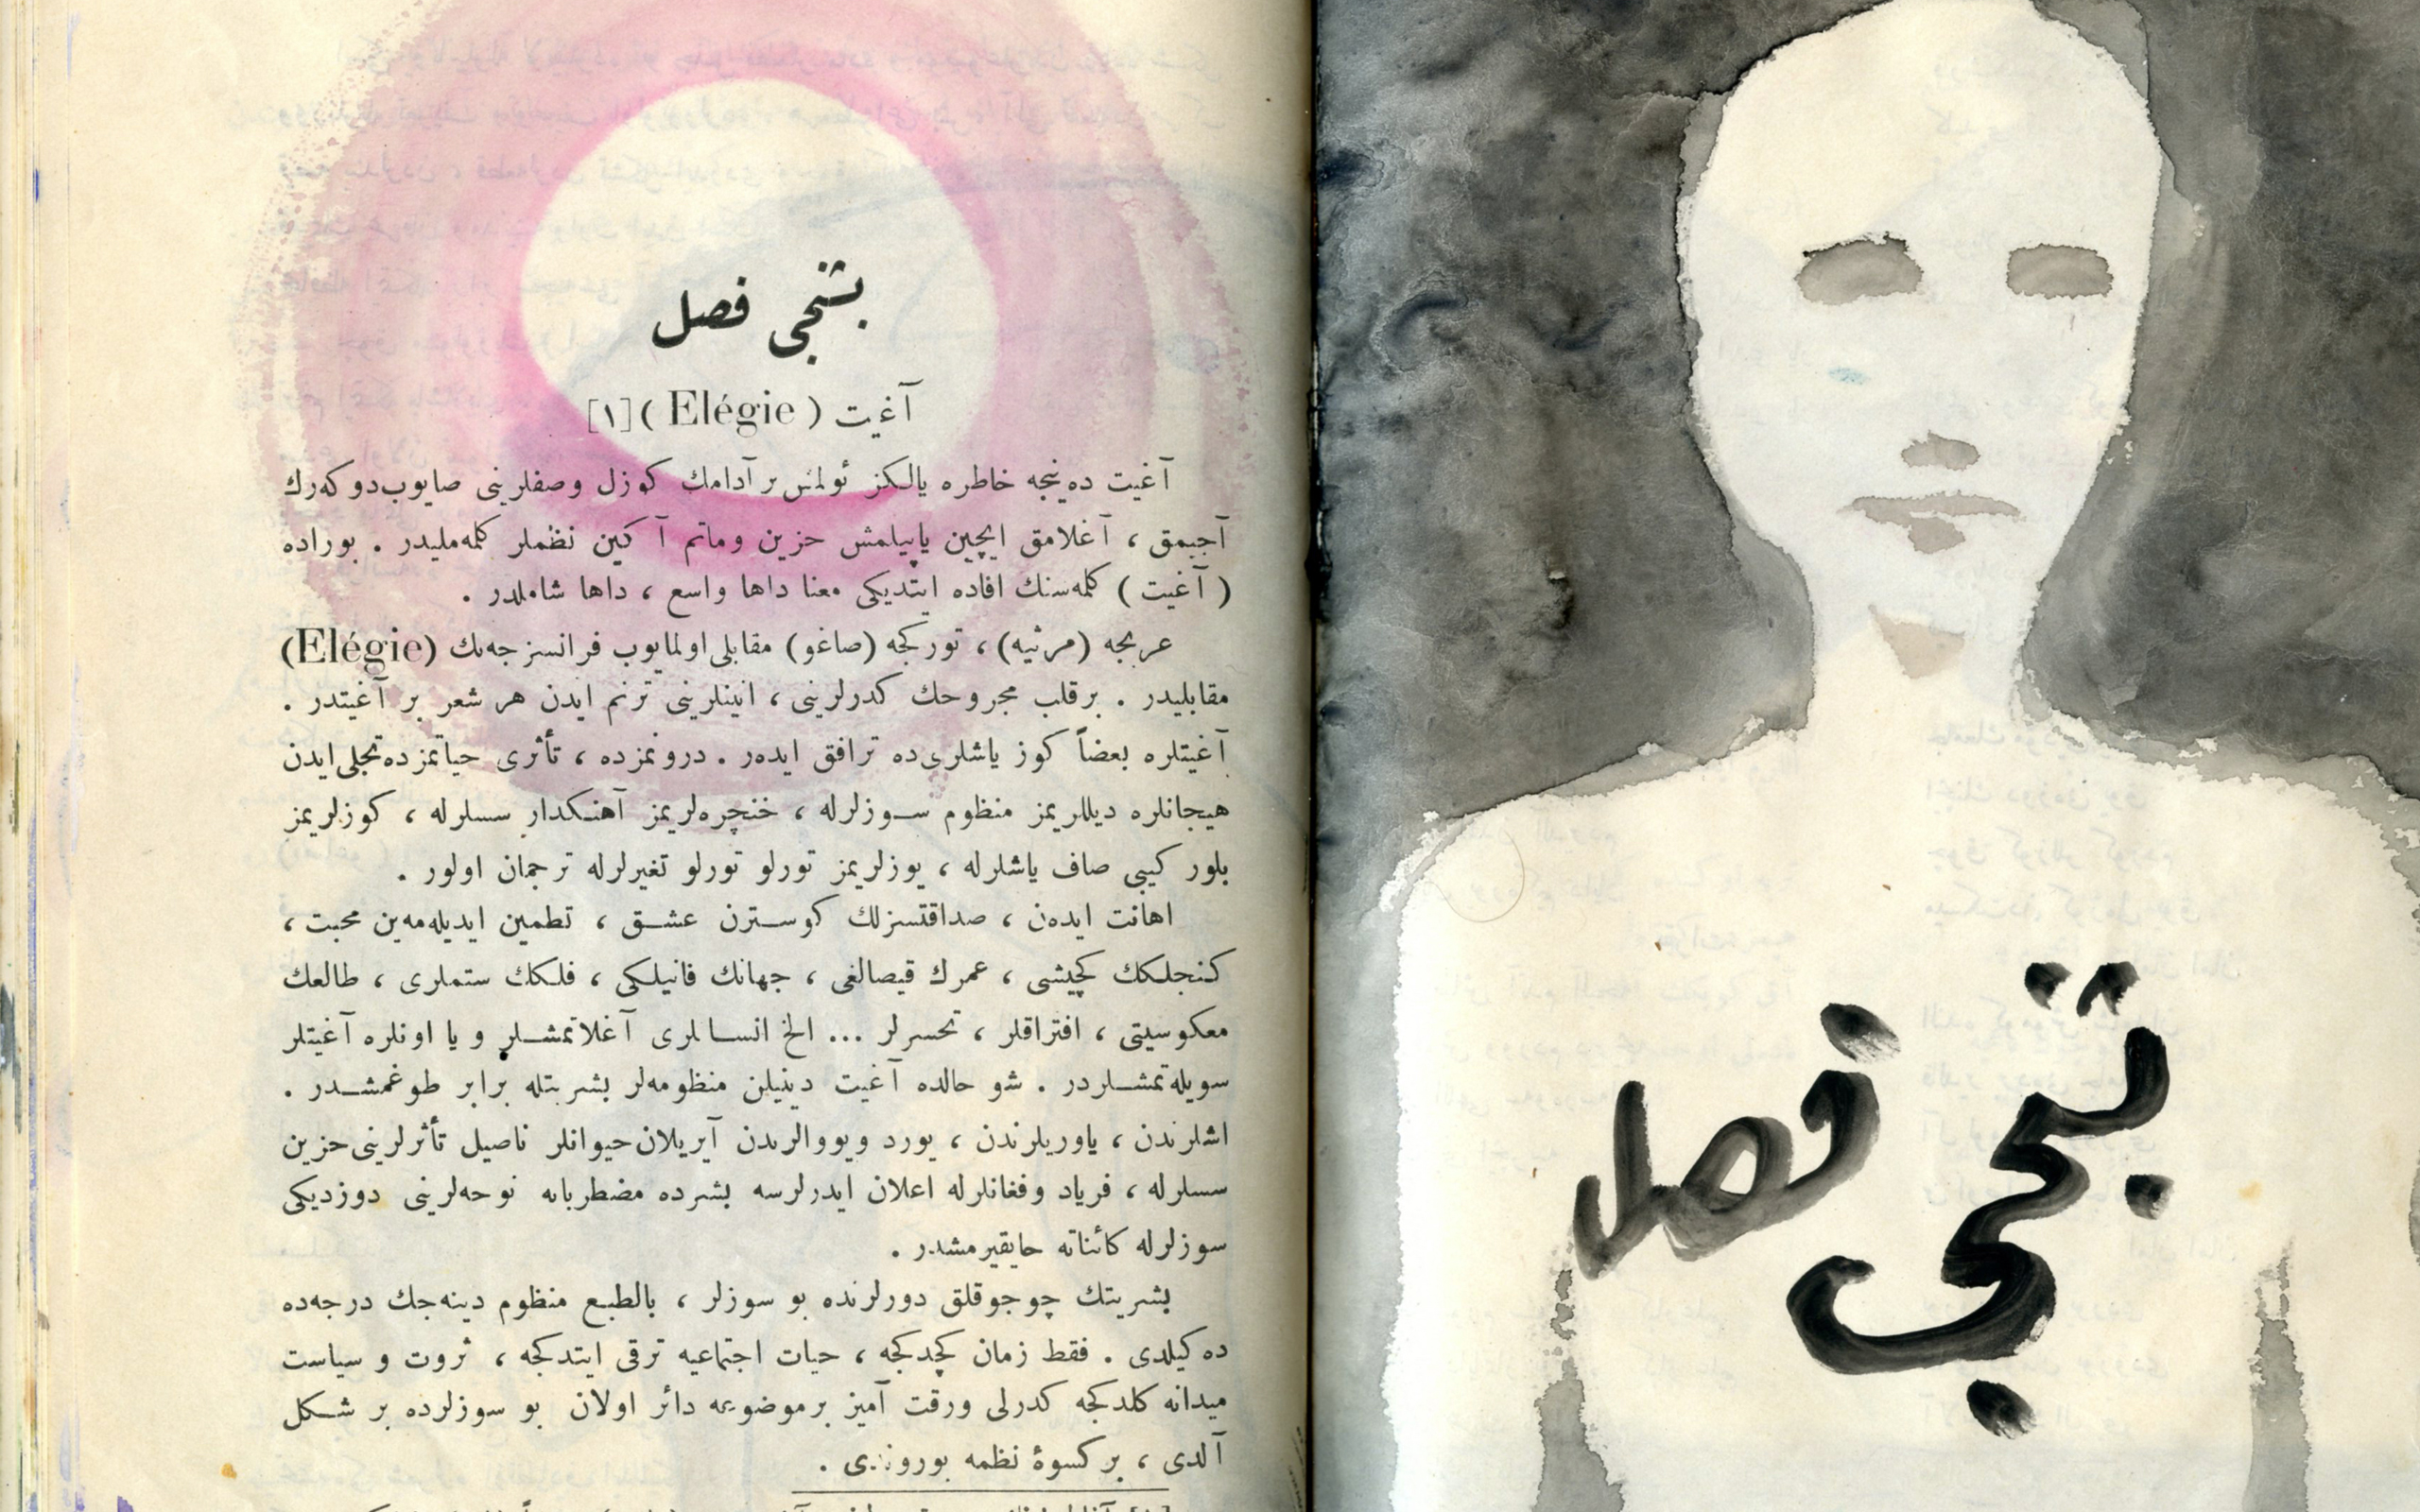 بشنجی فصل
آغیت ( Elégie )[١]
آغیت ده‌ینجه خاطره یالکز ئولمش بر آدامك کوزل وصفلرینی صایوب‌دوکه‌رك
آجیمق ، آغلامق ایچین یاپیلمش حزین وماتم آ کین نظملر کلمه‌ملیدر . بوراده
( آغیت ) کلمه‌سنك افاده ایتدیکی معنا داها واسع ، داها شاملدر .
عربجه (مرثیه) ، تورکجه (صاغو) مقابلی‌اولمایوب فرانسزجه‌نك (Elégie)
مقابلیدر . برقلب مجروحك کدرلرینی ، انینلرینی ترنم ایدن هر شعر بر آغیتدر .
آغیتلره بعضاً کوز یاشلری‌ده ترافق ایده‌ر . درونمزده ، تأثری حیاتمزده‌تجلی‌ایدن
هیجانلره دیللریمز منظوم سوزلرله ، خنچره‌لریمز آهنکدار سسلرله ، کوزلریمز
بلور کیبی صاف یاشلرله ، یوزلریمز تورلو تورلو تغیرلرله ترجمان اولور .
اهانت ایده‌ن ، صداقتسزلك کوسترن عشق ، تطمین ایدیله‌مه‌ین محبت ،
کنجلکك کچیشی ، عمرك قیصالغی ، جهانك فانیلکی ، فلکك ستملری ، طالعك
معکوسیتی ، افتراقلر ، تحسرلر ... الخ انسانلری آغلاتمشلر و یا اونلره آغیتلر
سویله‌تمشلردر . شو حالده آغیت دینیلن منظومه‌لر بشریتله برابر طوغمشدر .
اشلرندن ، یاوریلرندن ، یورد ویووالرندن آیریلان‌حیوانلر ناصیل تأثرلرینی‌حزین
سسلرله ، فریاد وفغانلرله اعلان ایدرلرسه بشرده مضطربانه نوحه‌لرینی دوزدیکی
سوزلرله کائناته حایقیرمشدر .
بشریتك چوجوقلق دورلرنده بو سوزلر ، بالطبع منظوم دینه‌جك درجه‌ده
ده‌کیلدی . فقط زمان کچدکجه ، حیات اجتماعیه ترقی ایتدکجه ، ثروت و سیاست
میدانه کلدکجه کدرلی ورقت آمیز برموضوعه دائر اولان بو سوزلرده بر شکل
آلدی ، بر کسوهٔ نظمه بوروندی .
بشنجی
فصل